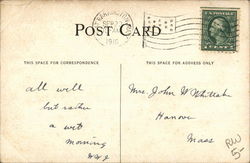 POST CARD
SEP 22
1916
THIS SPACE FOR CORRESPONDENCE
THIS SPACE FOR ADDRESS ONLY
all well
but rather
a wet
morning
Mrs. John
Hanover
Mass